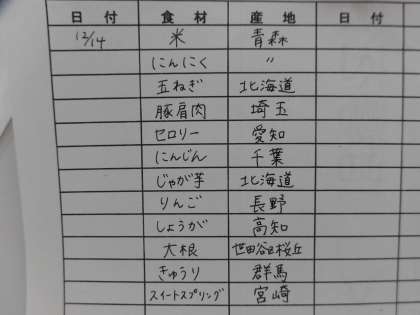 日付 食材 産地 日付
12/14 米 青森
にんにく 〃
玉ねぎ 北海道
豚肩肉 埼玉
セロリー 愛知
にんじん 千葉
じゃが芋 北海道
りんご 長野
しょうが 高知
大根 世田谷区桜丘
きゅうり 群馬
スイートスプリング 宮崎